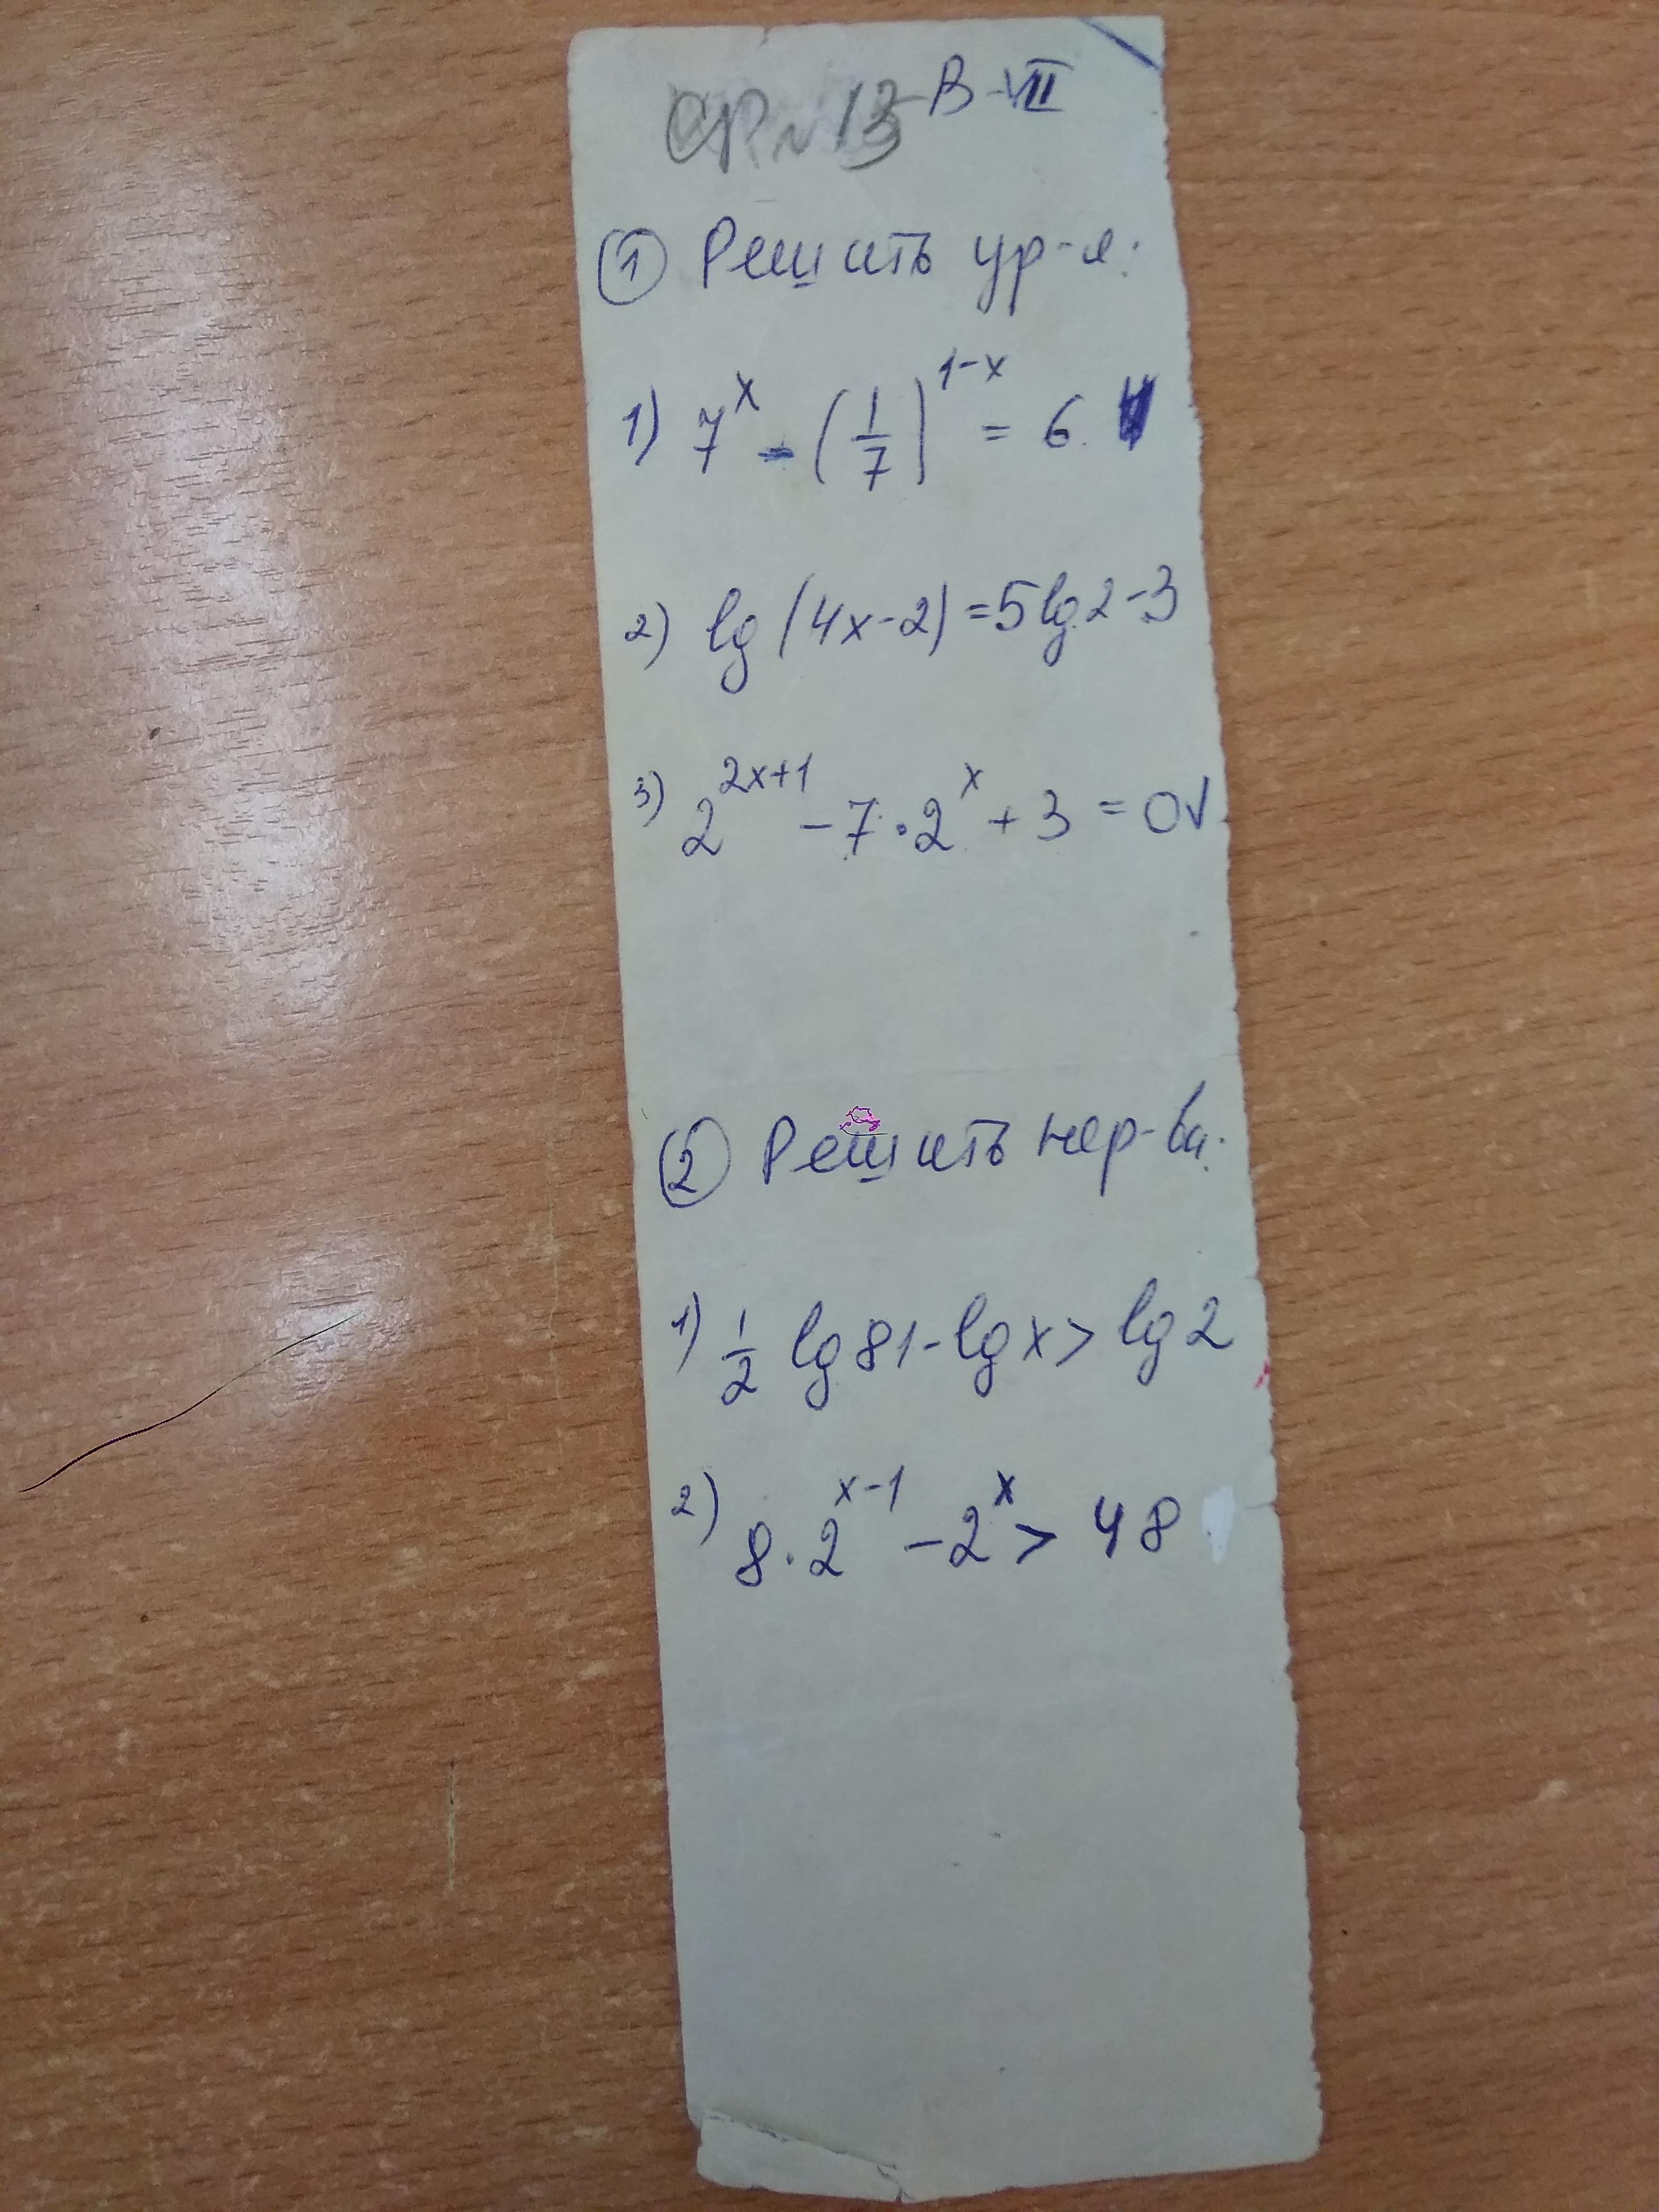 СР№13 В-VII
① Решить ур-я:
1) 7^x - (1/7)^(1-x) = 6
2) lg(4x-2)=5lg2-3
3) 2^(2x+1) - 7·2^x + 3 = 0√
② Решить нер-ва:
1) 1/2 lg81-lgx > lg2
2) 8·2^(x-1) - 2^x > 48